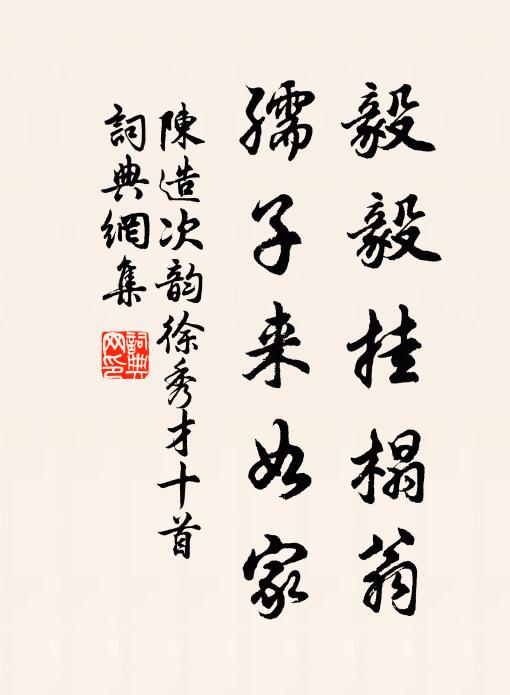 毅毅挂榻翁
孺子来如家
陳造次韵徐秀才十首
詞典網集
詞典網印